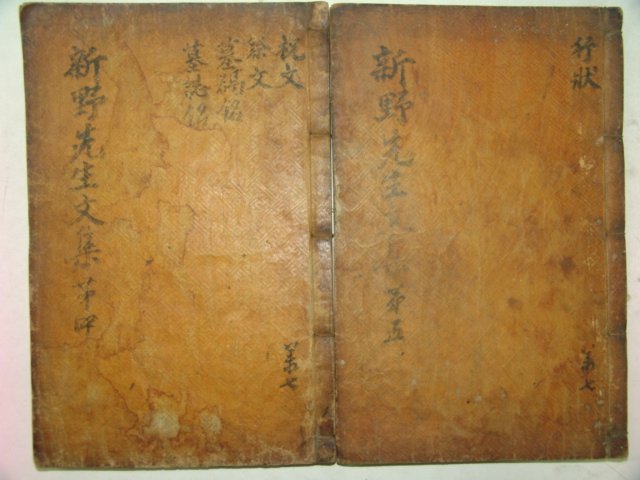 行狀
苐七
新野先生文集 苐五
祝文
祭文
墓碣銘
墓誌銘
苐七
新野先生文集 苐四